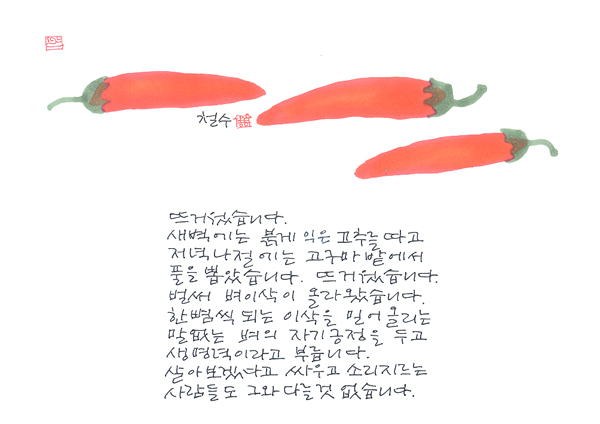 철수
뜨거웠습니다.
새벽에는 붉게 익은 고추를 따고
저녁나절에는 고구마 밭에서
풀을 뽑았습니다. 뜨거웠습니다.
벌써 벼이삭이 올라왔습니다.
한뼘씩 되는 이삭을 밀어올리는
말없는 벼의 자기긍정을 두고
생명력이라고 부릅니다.
살아보겠다고 싸우고 소리지르는
사람들도 그와 다를 것 없습니다.